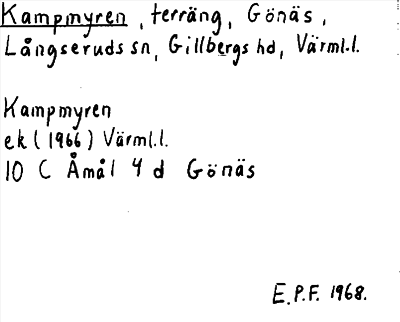 Kampmyren, terräng, Gönäs,
Långseruds sn, Gillbergs hd, Värml.l.
Kampmyren
ek (1966) Värml.l.
10 C Åmål 4 d Gönäs
E.P.F. 1968.